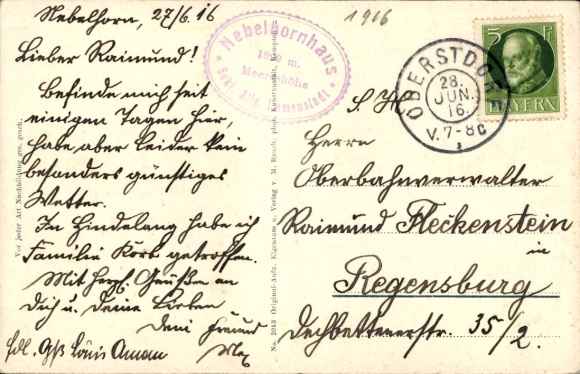 Nebelhorn, 27/6.16
Lieber Raimund!
Befinde mich seit
einigen Tagen hier,
habe aber leider kein
besonders günstiges
Wetter.
In Hindelang habe ich
Familie Korb getroffen.
Mit herzl. Grüßen an
Dich u. Deine Lieben
Dein Freund
Max
frdl. Gß Louis Aman
Nebelhornhaus
m.
Meereshöhe
Sekt. Allg. Immenstadt
1916
OBERSTDORF
28.
JUN.
16.
V. 7-8
5 Pf
BAYERN
S. H.
Herrn
Oberbahnverwalter
Raimund Fleckenstein
in
Regensburg
Dechbettenerstr. 35/2.
Vor jeder Art Nachbildung ges. gesch.
No. 2043 Original-Aufn. Eigentum u. Verlag v. M. Rauch, phot. Kunstanstalt, Kempten